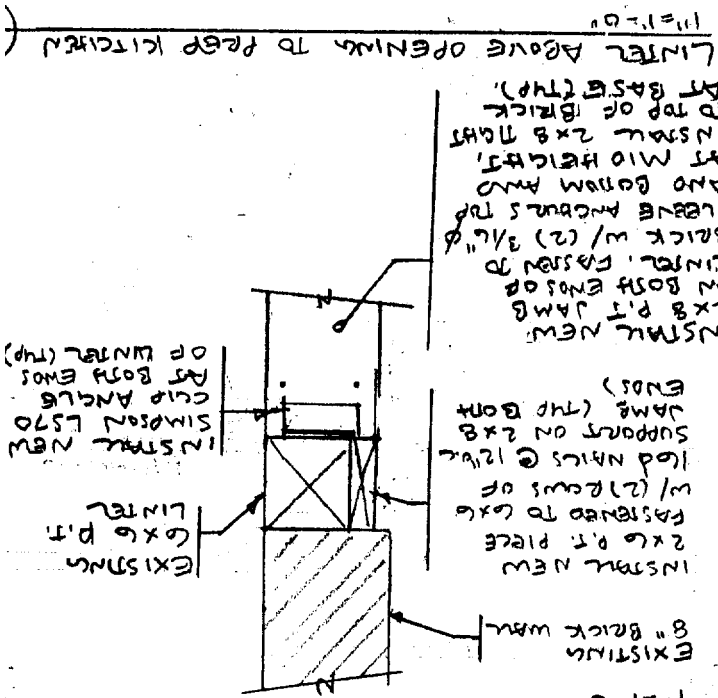 EXISTING
8" BRICK WALL
INSTALL NEW
2x6 P.T. PIECE
FASTENED TO 6x6
W/ (2) ROWS OF
16d NAILS @ 12"o.c
SUPPORT ON 2x8
JAMB (TYP BOTH
ENDS)
EXISTING
6x6 P.T.
LINTEL
INSTALL NEW
SIMPSON LS70
CLIP ANGLE
AT BOTH ENDS
OF LINTEL (TYP)
INSTALL NEW
2x8 P.T. JAMB
ON BOTH ENDS OF
LINTEL. FASTEN TO
BRICK W/ (2) 3/16"ø
SLEEVE ANCHORS TOP
AND BOTTOM AND
AT MID HEIGHT.
INSTALL 2x8 TIGHT
TO TOP OF BRICK
AT BASE (TYP).
LINTEL ABOVE OPENING TO PREP KITCHEN
1"=1'-0"